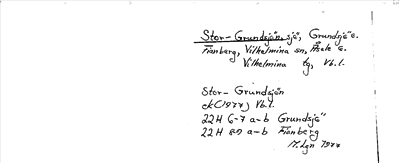 Stor-Grundsjön, sjö, Grundsjö e.
Fianberg, Vilhelmina sn, Åsele e.
Vilhelmina tg, Vb.l.
Stor-Grundsjön
ek (1977) Vb.l.
22H 6-7 a-b Grundsjö
22H 89 a-b Fianberg
1977